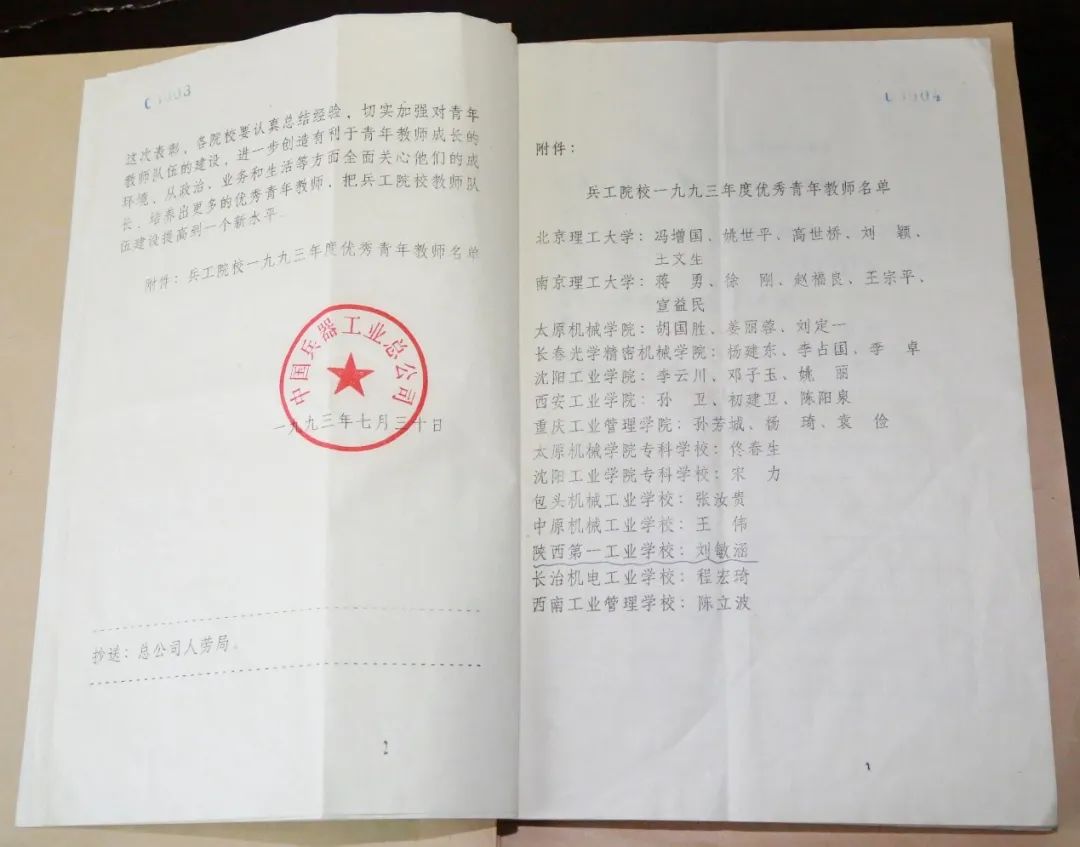 这次表彰，各院校要认真总结经验，切实加强对青年
教师队伍的建设，进一步创造有利于青年教师成长的
环境，从政治、业务和生活等方面全面关心他们的成
长，培养出更多的优秀青年教师，把兵工院校教师队
伍建设提高到一个新水平。
附件：兵工院校一九九三年度优秀青年教师名单
中国兵器工业总公司
一九九三年七月三十日
抄送：总公司人劳局。
2
附件：
兵工院校一九九三年度优秀青年教师名单
北京理工大学：冯增国、姚世平、高世桥、刘　颖、
王文生
南京理工大学：蒋　勇、徐　刚、赵福良、王宗平、
宣益民
太原机械学院：胡国胜、姜丽蓉、刘定一
长春光学精密机械学院：杨建东、李占国、李　卓
沈阳工业学院：李云川、邓子玉、姚　丽
西安工业学院：孙　卫、初建卫、陈阳泉
重庆工业管理学院：孙芳城、杨　琦、袁　俭
太原机械学院专科学校：佟春生
沈阳工业学院专科学校：宋　力
包头机械工业学校：张汝贵
中原机械工业学校：王　伟
陕西第一工业学校：刘敏涵
长治机电工业学校：程宏琦
西南工业管理学校：陈立波
1